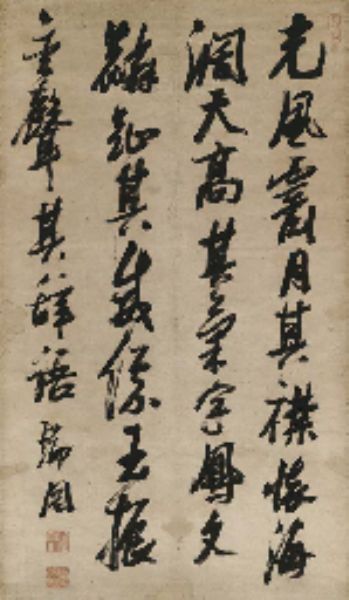 光風霽月其襟懷海
濶天高其氣宇鳳文
麟趾其威儀玉振
金聲其辭語 瑞圖